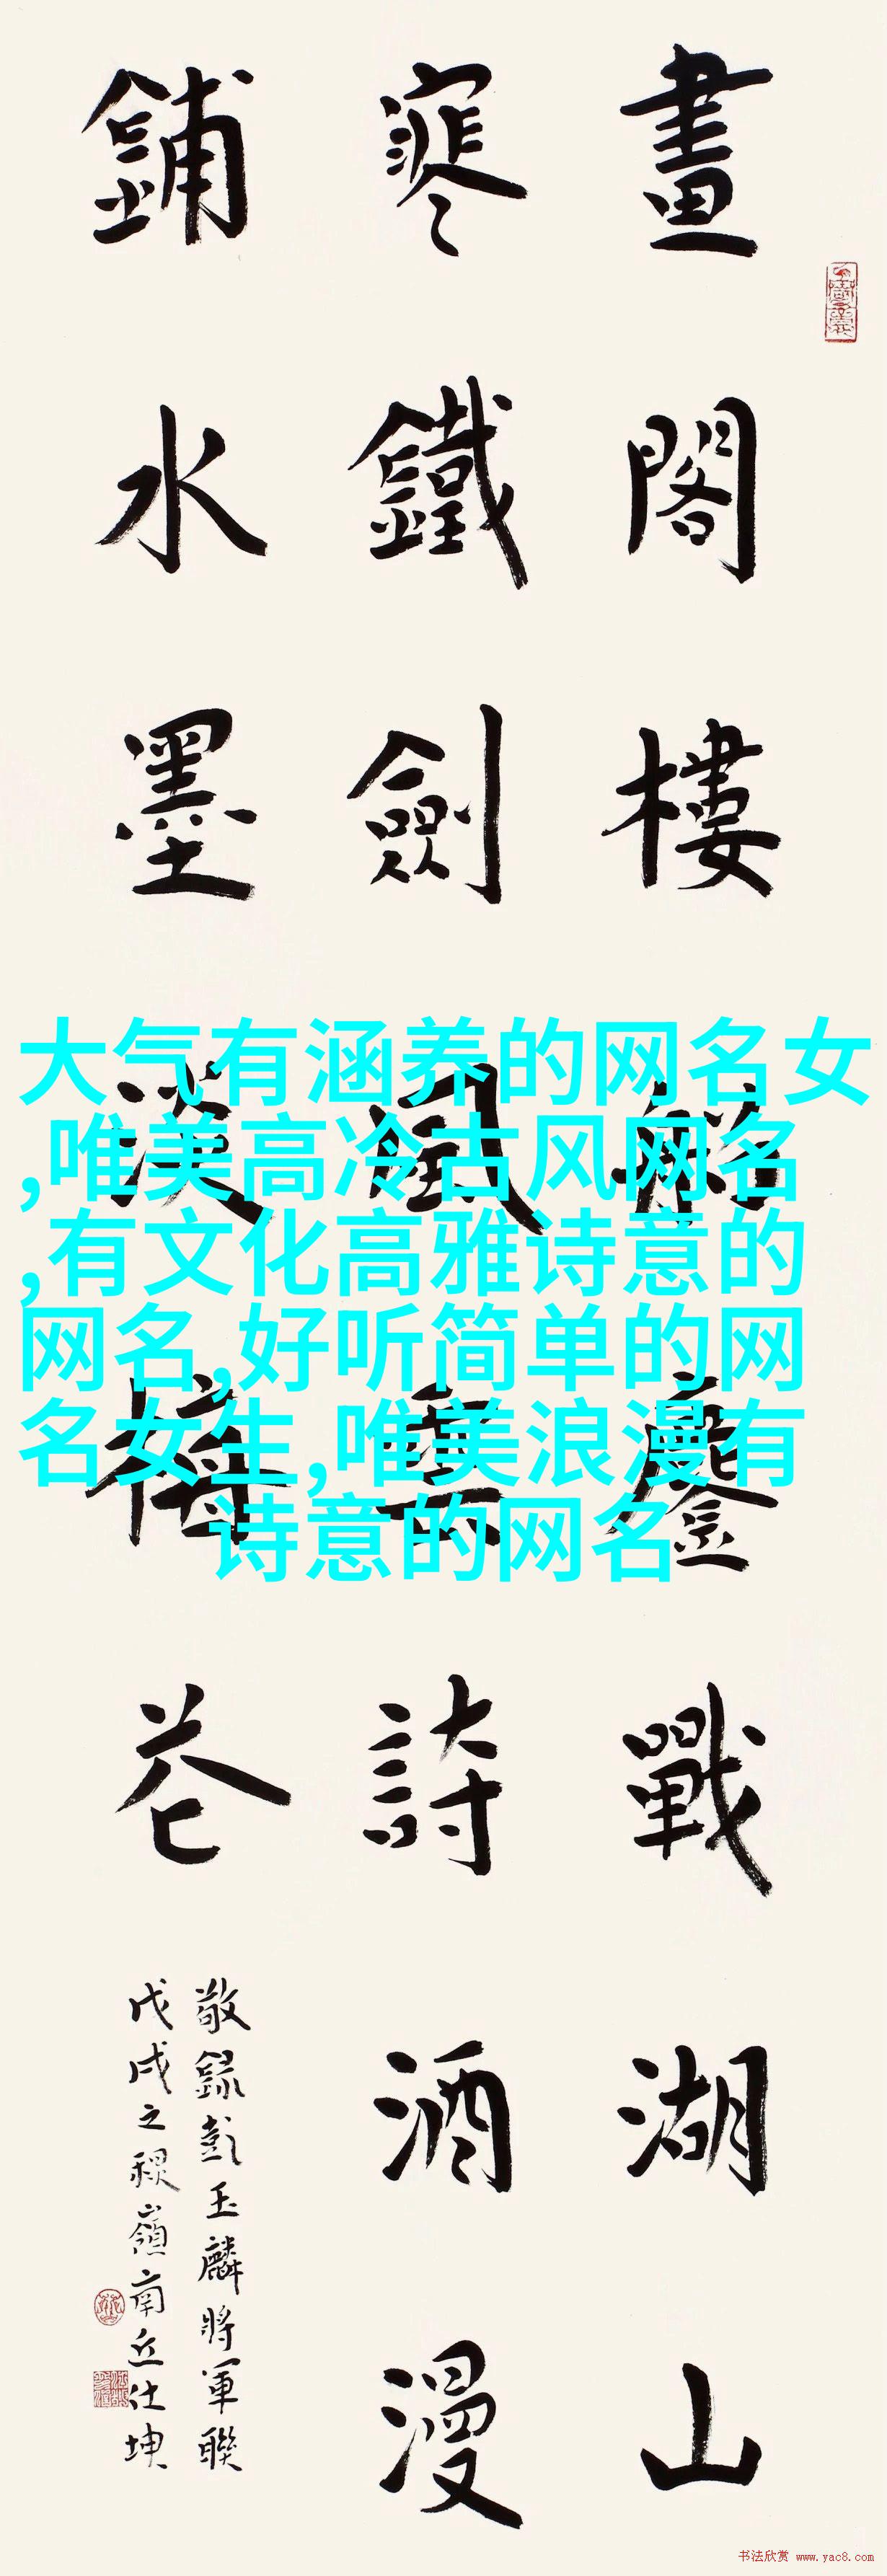 畫閣樓船鏖戰湖山
寒鐵劍風雲詩酒漫
鋪水墨淡梅花
敬録彭玉麟將軍聯
戊戌之嶺南丘仕坤
大气有涵养的网名女
,唯美高冷古风网名
,有文化高雅诗意的
网名,好听简单的网
名女生,唯美浪漫有
诗意的网名
书法欣赏 www.yac8.com